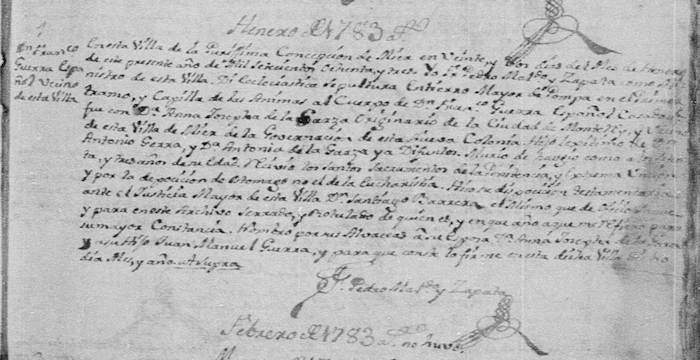 Henero de 1783 as
1
Dn Franco
Guerra Espa
ñol Vecino
de esta Villa
En esta Villa de la Purissima Concepcion de Mier en Veinte, y dos dias del Mes de Henero
de este presente año de Mil Setecientos Ochenta, y tres. Yo Fr. Pedro Maldo y Zapata como Mi
nistro de esta Villa. Di Ecleciastica Sepultura Entierro Mayor de Pompa en el
tramo, y Capilla de las Animas al Cuerpo de Dn Franco Guerra Español Casado que
fue con Da Anna Josepha de la Garza Originario de la Ciudad de Monterrey, y Vecino
de esta Villa de Mier de la Governacion de esta Nueva Colonia. Hijo legitimo de
Antonio Gerra, y Da Antonia de la Garza ya Difuntos. Murio de
ta, y tres años de su Edad. Recivio los Santos Sacramentos de la Penitencia, y Extrema Uncion
y por la deposicion de Estomago no el de la Eucharistia. Hizo su disposicion testamentaria
ante el Justicia Mayor de esta Villa Dn Santiago Barrera, el Mismo que
y para en este Archivo Serrado, y Rotulado de quien es, y en que año
su mayor Constancia. Nombro por sus Alvaceas à su Esposa Da Anna Josepha de la Garza
y a su Hijo Juan Manuel Guerra, y para que conste lo firme en esta dicha Villa en dho
dia Mes, y año. ut Supra
Fr. Pedro Maldo y Zapata
Febrero de 1783 as no huvo.